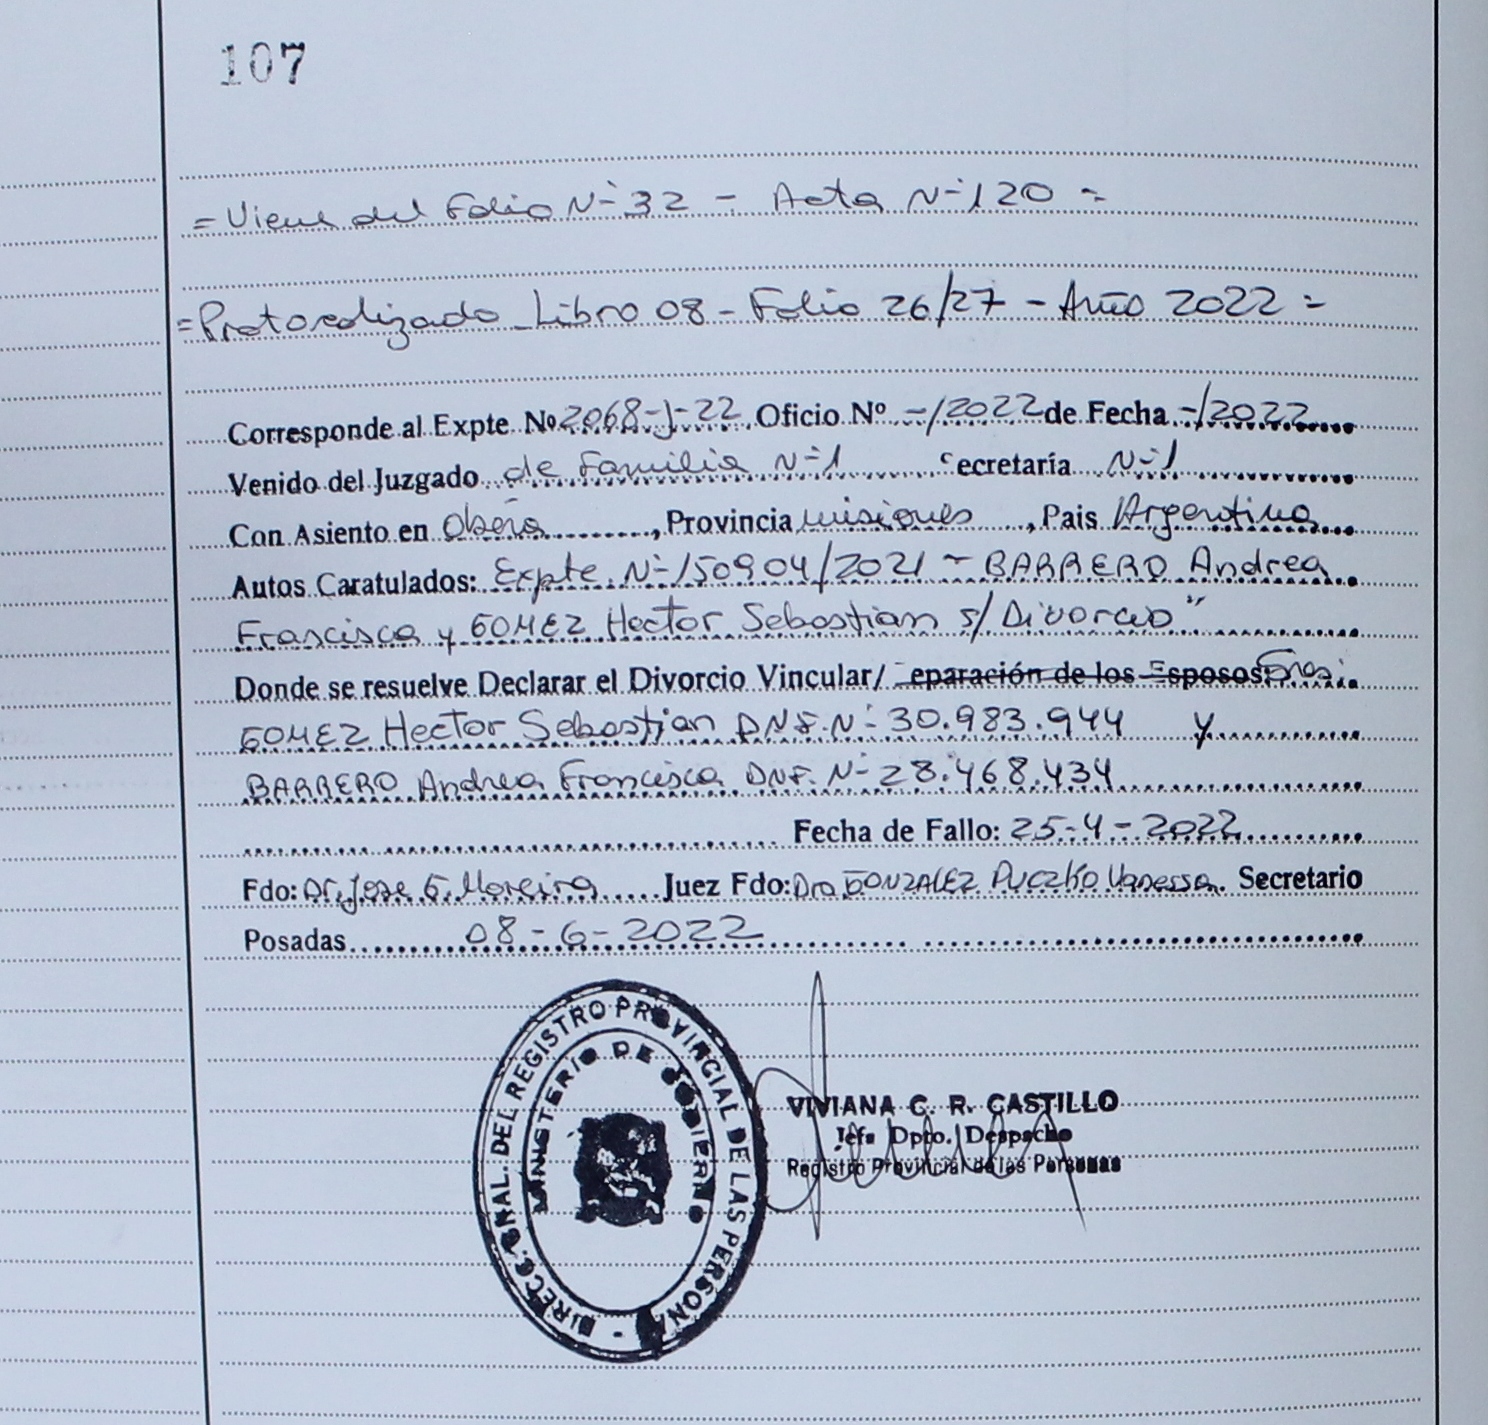 107
= Viene del Folio N-32 - Acta N-120 =
= Protocolizado Libro 08 - Folio 26/27 - Año 2022 =
Corresponde al Expte Nº 2068-J-22 Oficio Nº -/2022 de Fecha -/2022
Venido del Juzgado de Familia N-1 ecretaría N-1
Con Asiento en Oberá, Provincia Misiones, Pais Argentina
Autos Caratulados: Expte. N-150904/2021 - BARRERO Andrea
Francisca y GOMEZ Hector Sebastian s/ Divorcio"
Donde se resuelve Declarar el Divorcio Vincular/ eparación de los Esposos: Sres:
GOMEZ Hector Sebastian DNI. N- 30.983.944 y
BARRERO Andrea Francisca DNI. N- 28.468.434
Fecha de Fallo: 25-4-2022
Fdo: Dr. Jose G. Moreira Juez Fdo: Dra GONZALEZ Puczko Vanessa. Secretario
Posadas 08-6-2022
DIRECC. GRAL. DEL REGISTRO PROVINCIAL DE LAS PERSONAS -
MINISTERIO DE GOBIERNO
VIVIANA C. R. CASTILLO
Jefa Dpto. Despacho
Registro Provincial de las Personas